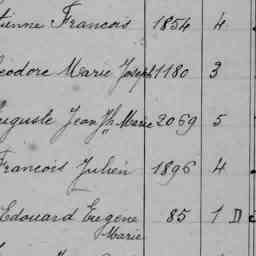 tienne Francois 1854 4
eodore Marie Joseph 1180 3
uguste Jean Jh Marie 2069 5
Francois Julien 1896 4
Edouard Eugene 85 1 D
Marie